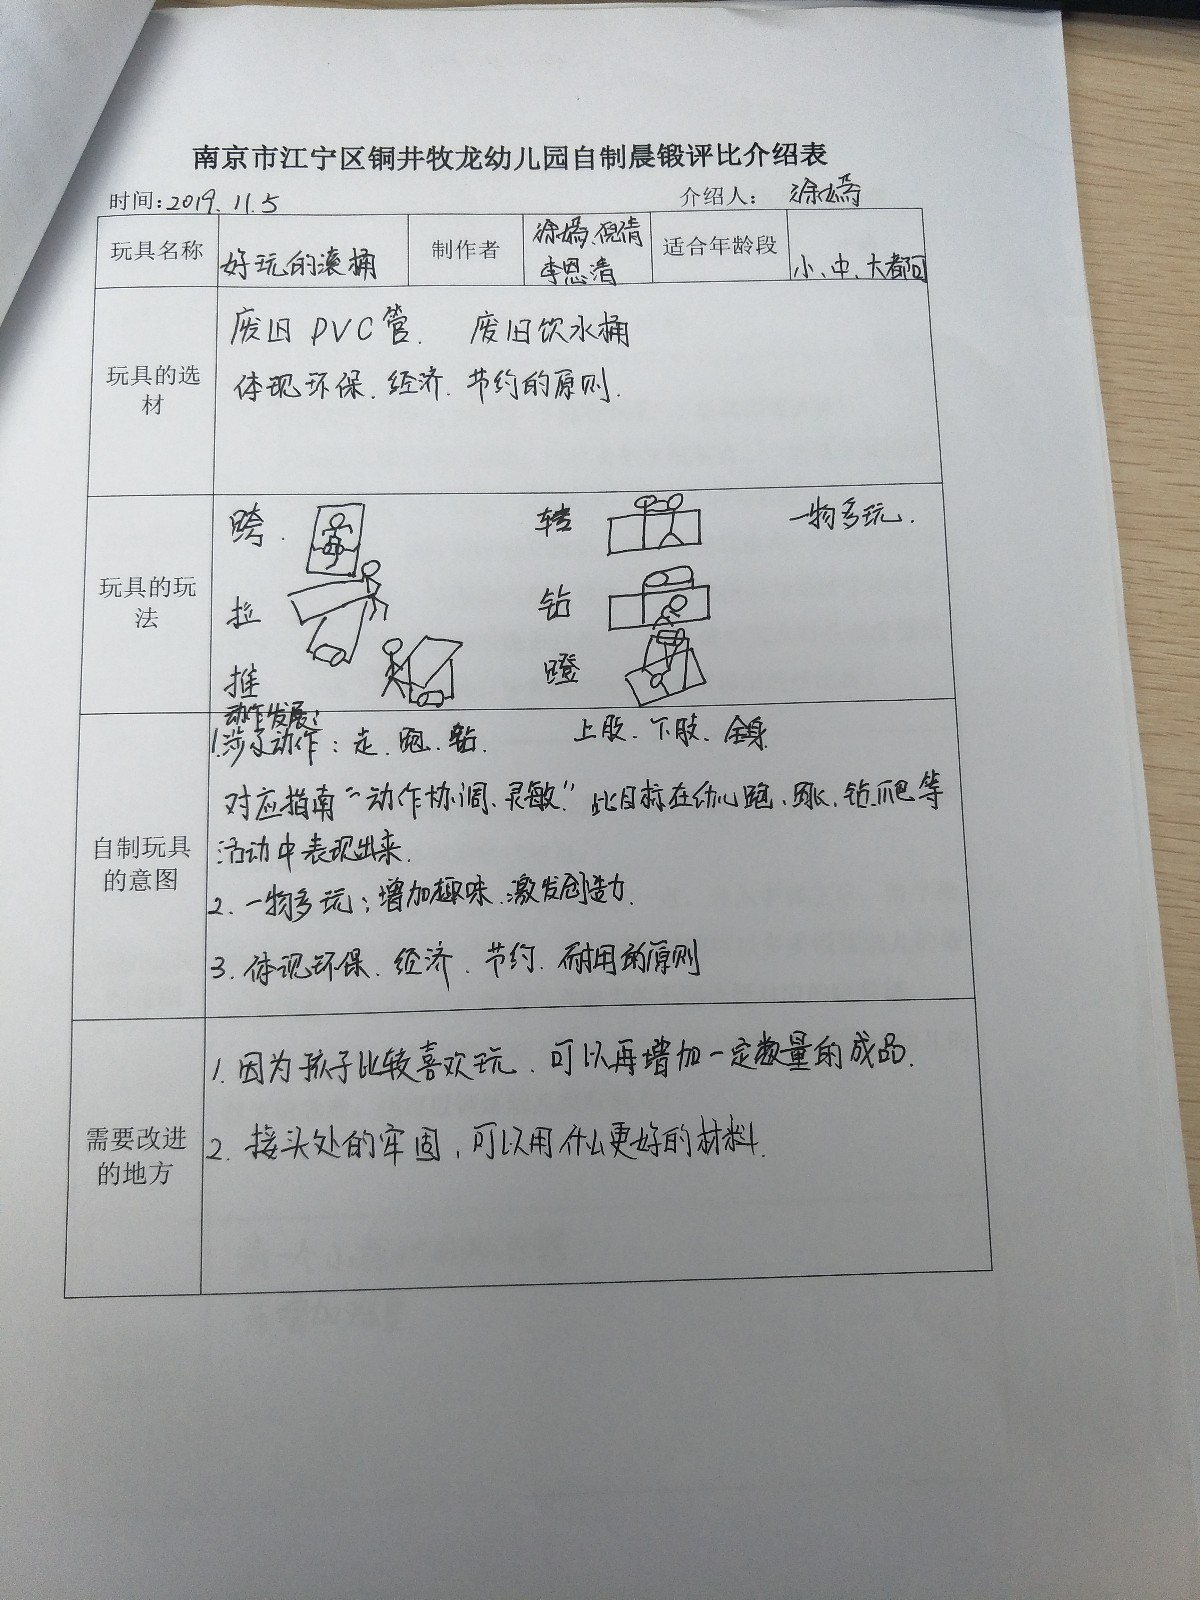 南京市江宁区铜井牧龙幼儿园自制晨锻评比介绍表
时间:2019.11.5 介绍人: 徐嫣
玩具名称 好玩的滚桶 制作者 徐嫣、倪倩 李恩清 适合年龄段 小、中、大都可
玩具的选材
废旧PVC管. 废旧饮水桶
体现环保、经济、节约的原则.
玩具的玩法
跨. 转 一物多玩.
拉 钻
推 蹬
自制玩具的意图
动作发展:
1.涉及动作:走、跑、钻. 上肢、下肢、全身.
对应指南“动作协调、灵敏.”此目标在幼儿跑、跳、钻爬等
活动中表现出来.
2.一物多玩;增加趣味.激发创造力.
3.体现环保、经济、节约、耐用的原则
需要改进的地方
1.因为孩子比较喜欢玩、可以再增加一定数量的成品.
2.接头处的牢固,可以用什么更好的材料.